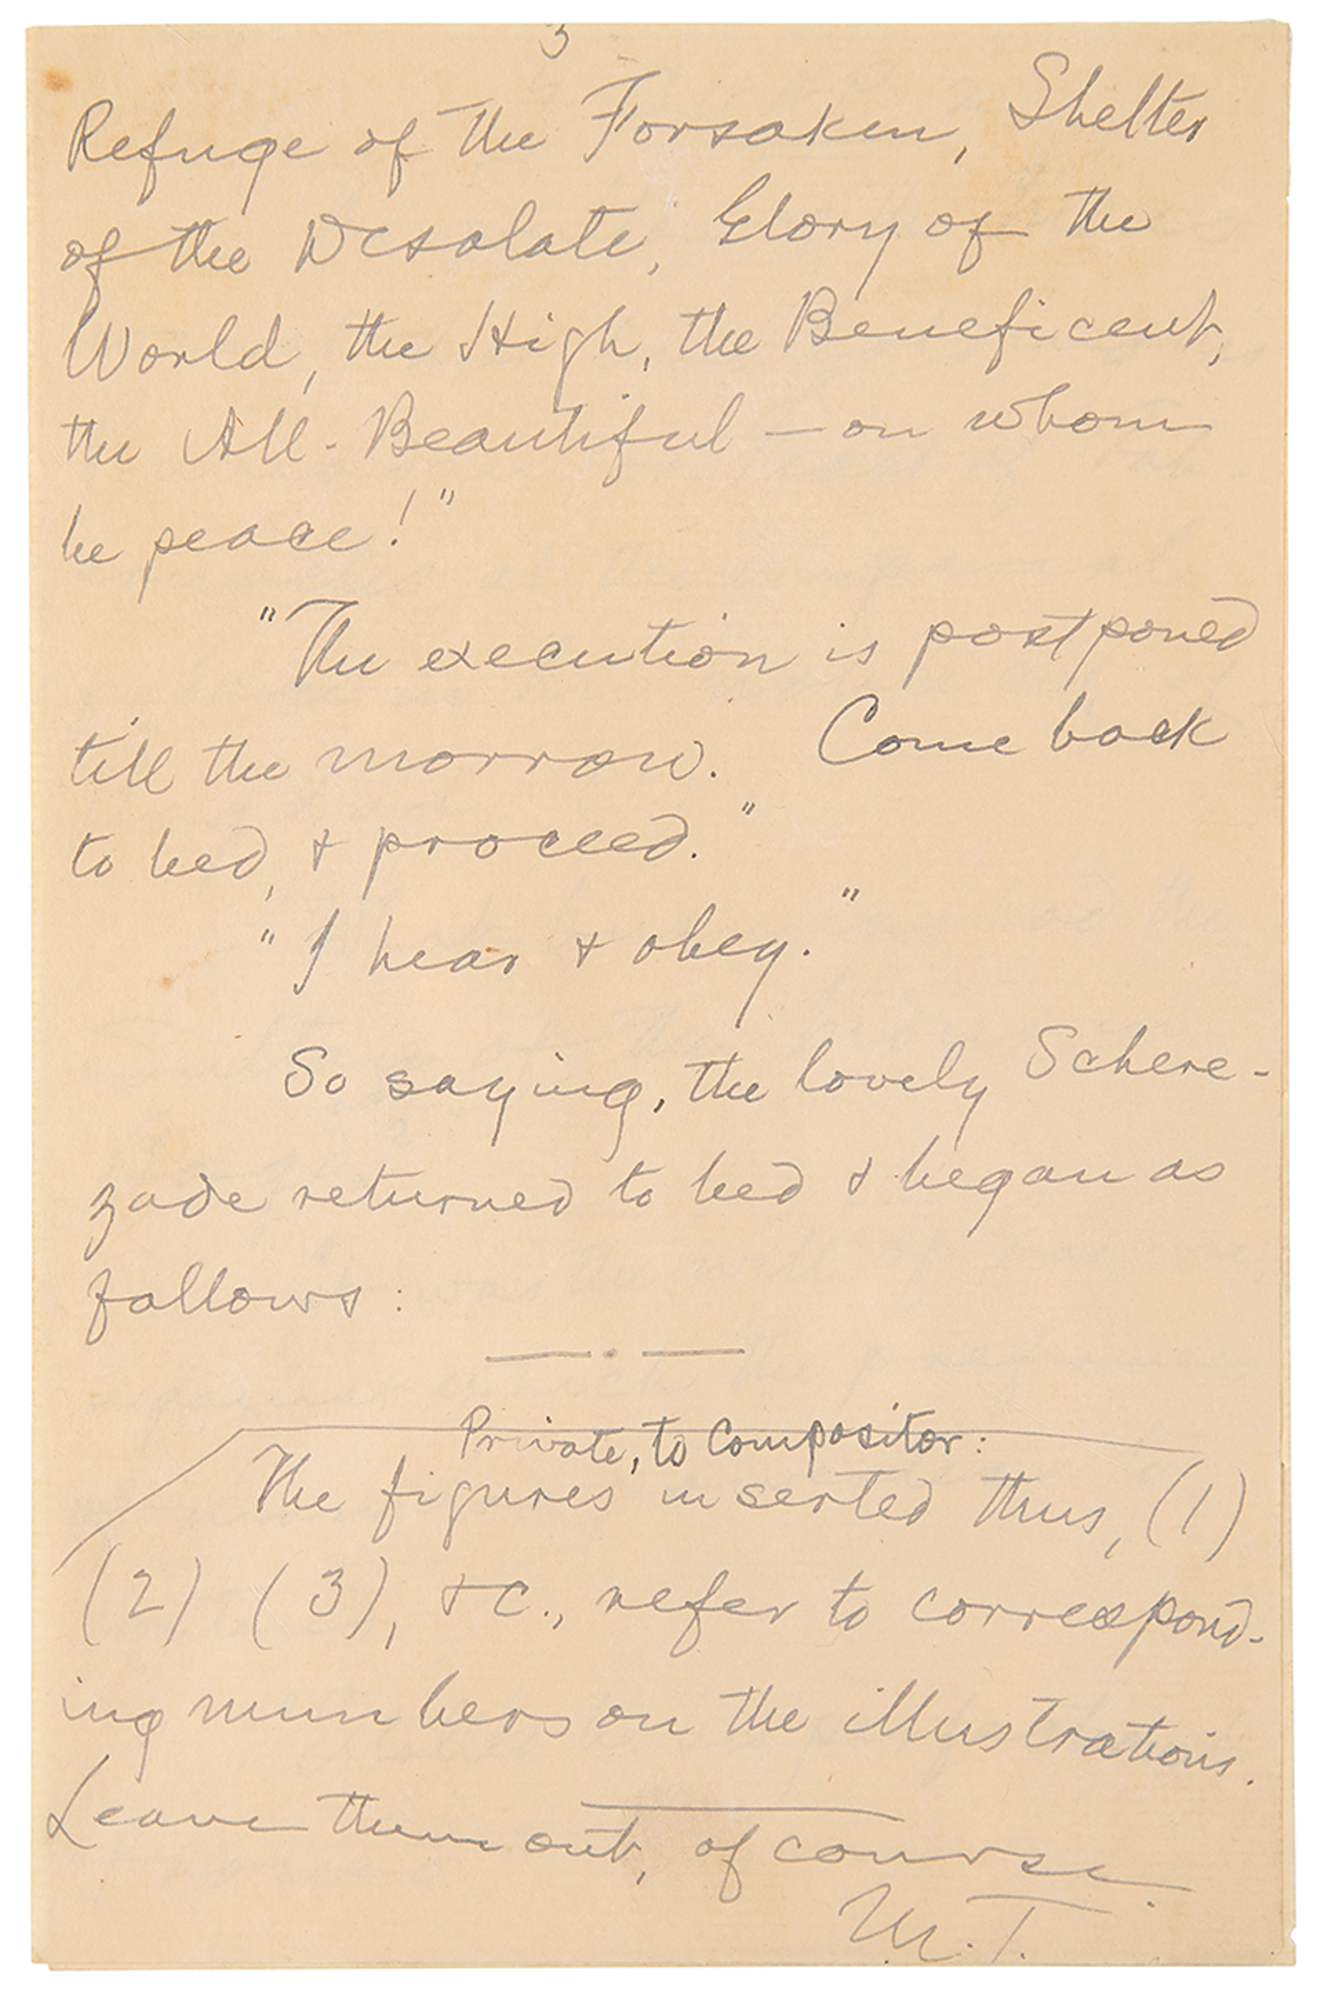 3
Refuge of the Forsaken, Shelter
of the Desolate, Glory of the
World, the High, the Beneficent,
the All-Beautiful — on whom
be peace!"
"The execution is postponed
till the morrow. Come back
to bed, & proceed."
"I hear & obey."
So saying, the lovely Schere-
zade returned to bed & began as
follows:
— · —
Private, to Compositor:
The figures inserted thus, (1)
(2) (3), &c., refer to correspond-
ing numbers on the illustrations.
Leave them out, of course.
M.T.